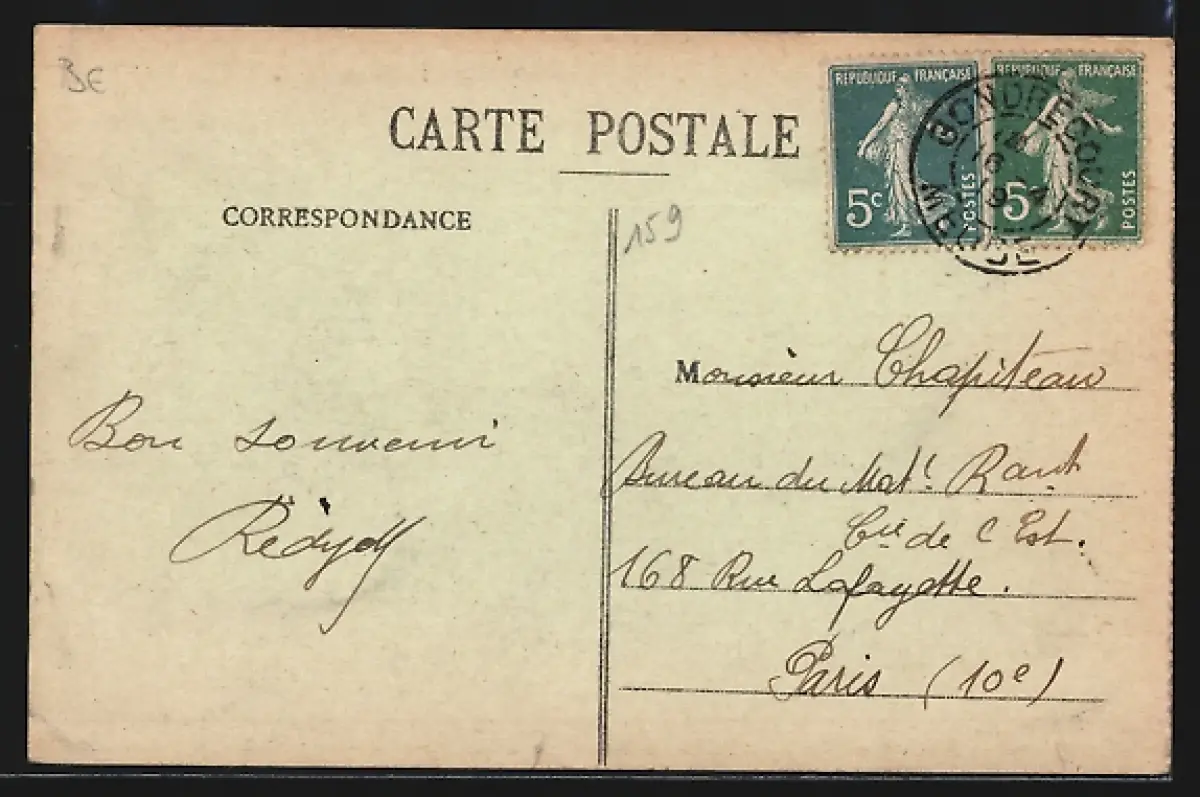 BE
CARTE POSTALE
REPUBLIQUE FRANÇAISE
5c
POSTES
REPUBLIQUE FRANÇAISE
5
POSTES
GONDRECOURT
MEUSE
CORRESPONDANCE
159
Monsieur Chapiteau
Bureau du Matl. Rant
Cie de l'Est.
168 Rue Lafayette.
Paris (10e)
Bon souvenir